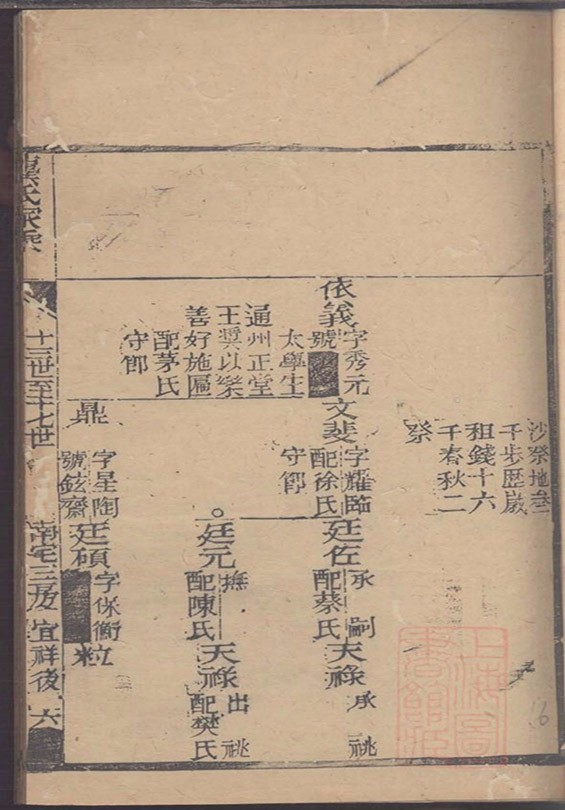 沙祭地叁
千步歷歲
租錢十六
千春秋二
祭
依義
字秀元
號
太學生
通州正堂
王奬以樂
善好施匾
配茅氏
守節
文斐
字耀臨
配徐氏
守節
廷佐
承嗣
配蔡氏
天祿
承祧
廷元
撫
配陳氏
天祿
出祧
配樊氏
鼎
字星陶
號鉉齋
廷碩
字休衡
立
龔氏家乘
十三世至十七世
南宅三房宜祥後
六
16
上海圖書館藏